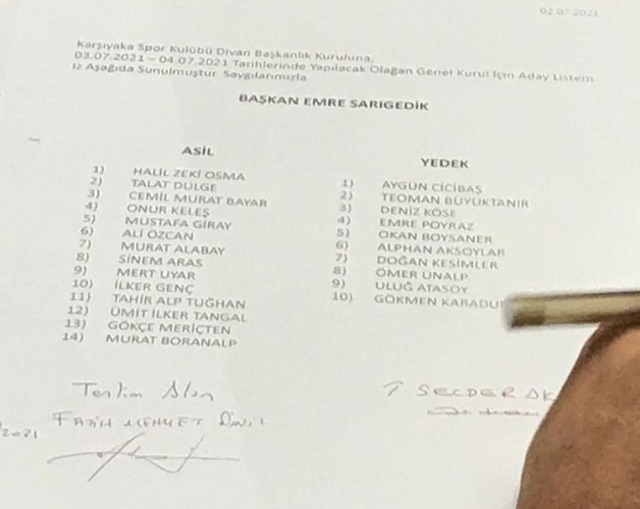 02.07.2021
Karşıyaka Spor Kulübü Divan Başkanlık Kuruluna;
03.07.2021 – 04.07.2021 Tarihlerinde Yapılacak Olağan Genel Kurul İçin Aday Listem
iz Aşağıda Sunulmuştur. Saygılarımızla
BAŞKAN EMRE SARIGEDİK
ASİL
1) HALİL ZEKİ OSMA
2) TALAT DÜLGE
3) CEMİL MURAT BAYAR
4) ONUR KELEŞ
5) MUSTAFA GİRAY
6) ALİ ÖZCAN
7) MURAT ALABAY
8) SİNEM ARAS
9) MERT UYAR
10) İLKER GENÇ
11) TAHİR ALP TUĞHAN
12) ÜMİT İLKER TANGAL
13) GÖKÇE MERİÇTEN
14) MURAT BORANALP
YEDEK
1) AYGÜN CİCİBAŞ
2) TEOMAN BÜYÜKTANIR
3) DENİZ KÖSE
4) EMRE POYRAZ
5) OKAN BOYSANER
6) ALPHAN AKSOYLAR
7) DOĞAN KESİMLER
8) ÖMER ÜNALP
9) ULUĞ ATASOY
10) GÖKMEN
Teslim Alan
FATİH MEHMET
SECDER
2021